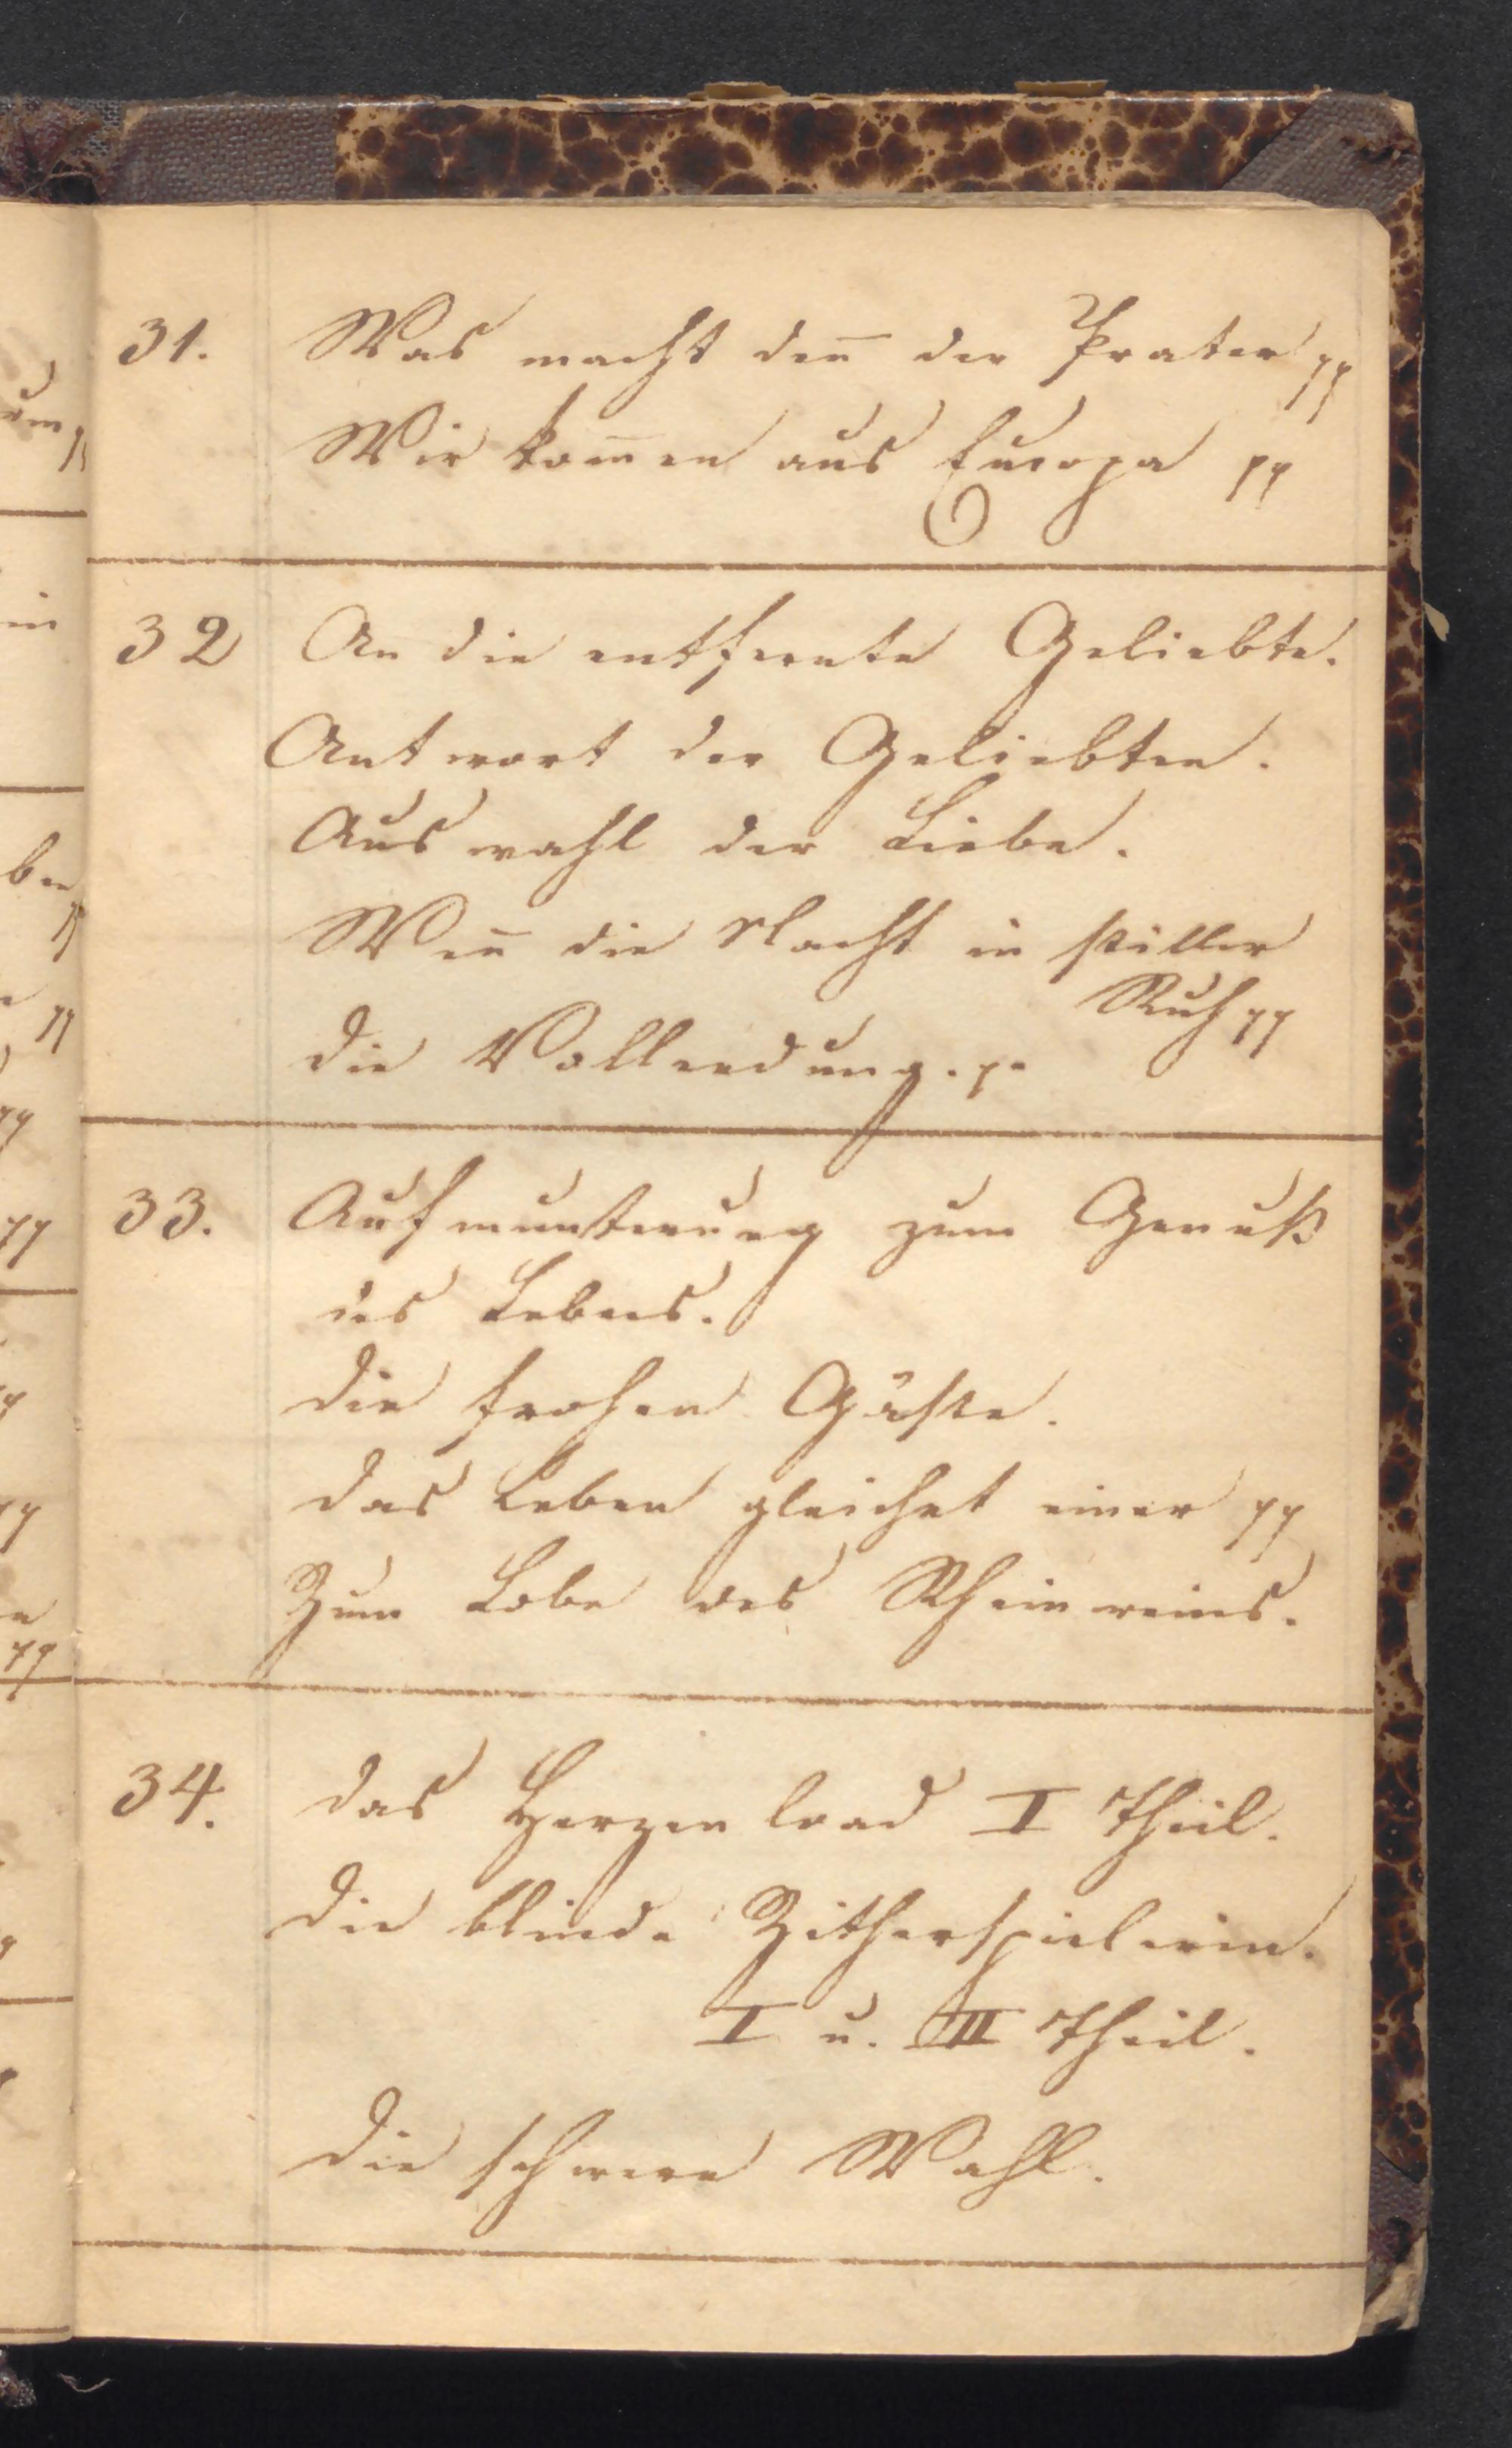 31. Was macht den̅ der Prater pp
Wir kom̅en aus Europa pp
32 An die entfernte Geliebte.
Antwort der Geliebten.
Auswahl der Liebe.
Wen̅ die Nacht in stiller
Ruh pp
Die Vollendung. p.
33. Aufmunterung zum Genuß
des Lebens.
Die frohen Gäste.
Das Leben gleichet einer pp
Zum Lobe des Rheinweins.
34. Das Herzenload I Theil.
Die blinde Zitherspielerin.
I u. II Theil.
Die schwere Wahl.